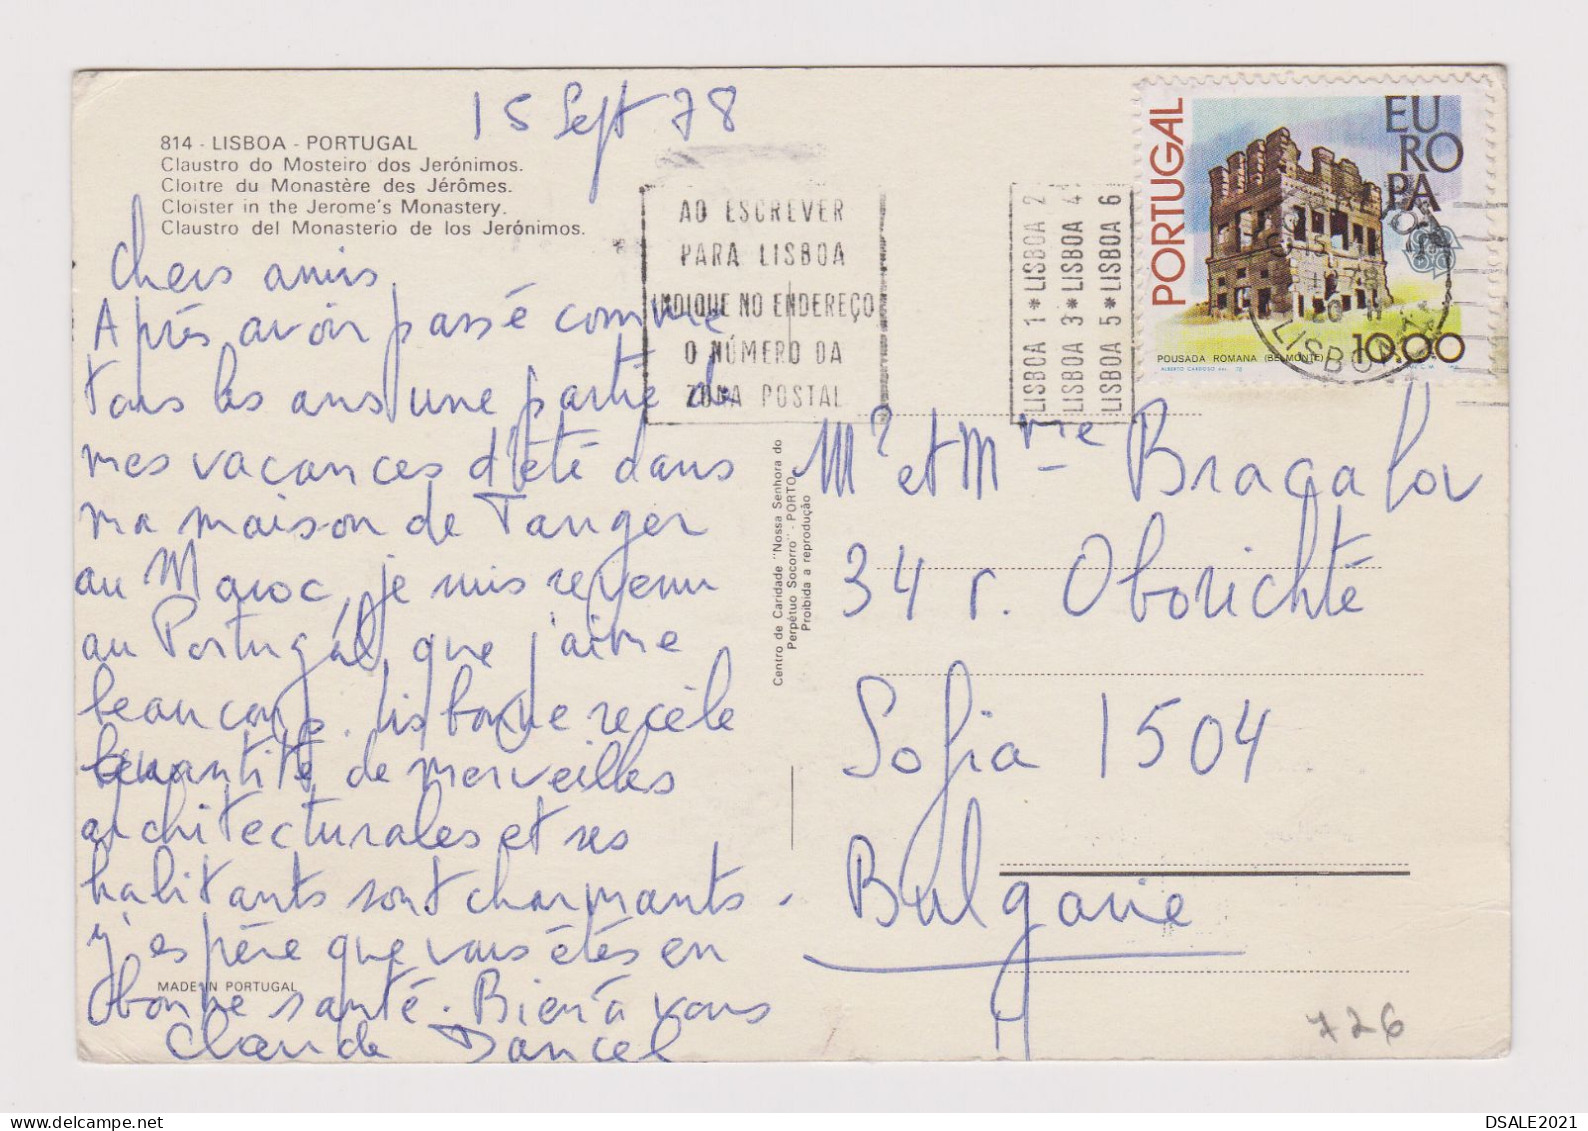 15 Sept 78
814 - LISBOA - PORTUGAL
Claustro do Mosteiro dos Jerónimos.
Cloître du Monastère des Jérômes.
Cloister in the Jerome's Monastery.
Claustro del Monasterio de los Jerónimos.
Chers amis,
Après avoir passé comme
tous les ans une partie de
mes vacances d'été dans
ma maison de Tanger
au Maroc, je suis revenu
au Portugal, que j'aime
beaucoup. Lisbonne recèle
quantité de merveilles
architecturales et ses
habitants sont charmants.
J'espère que vous étés en
bonne santé. Bien à vous
Claude
MADE IN PORTUGAL
AO ESCREVER
PARA LISBOA
INDIQUE NO ENDEREÇO
O NÚMERO DA
ZONA POSTAL
LISBOA 1 * LISBOA 2
LISBOA 3 * LISBOA 4
LISBOA 5 * LISBOA 6
PORTUGAL
EUROPA
POUSADA ROMANA (BELMONTE)
10.00
LISBOA
Centro de Caridade "Nossa Senhora do
Perpétuo Socorro" - PORTO
Proibida a reprodução
Mr et Mme Bragalov
34 r. Oborichté
Sofia 1504
Bulgarie
726
DSALE2021